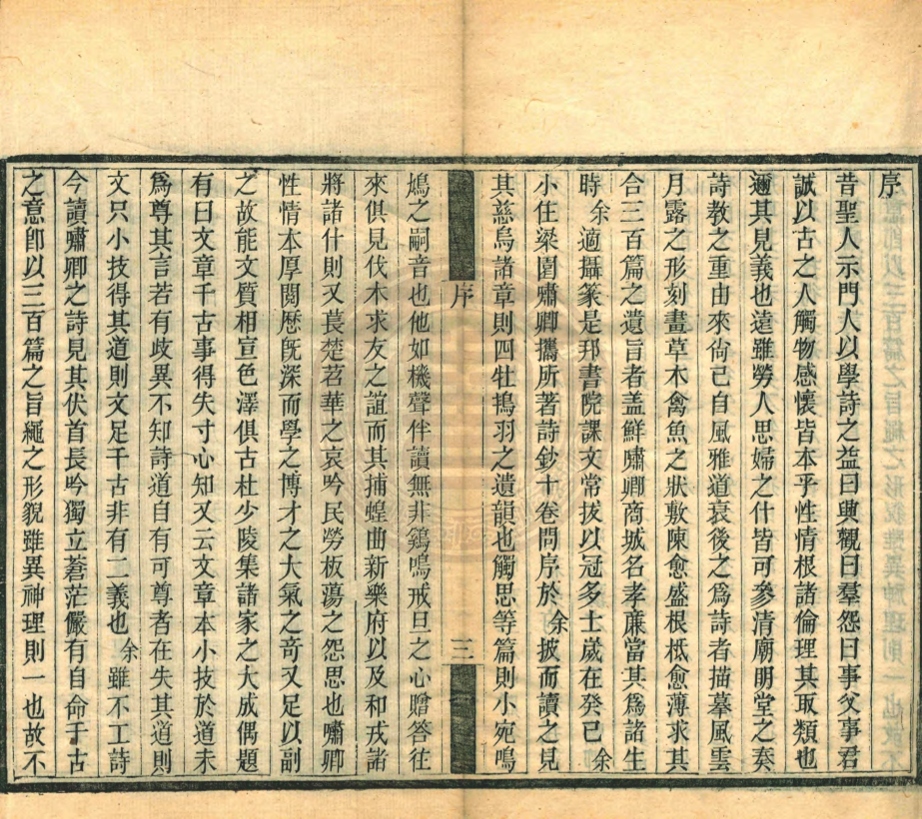 序
昔聖人示門人以學詩之益曰興觀曰羣怨曰事父事君
誠以古之人觸物感懷皆本乎性情根諸倫理其取類也
邇其見義也遠雖勞人思婦之什皆可參清廟明堂之奏
詩教之重由來尙已自風雅道衰後之爲詩者描摹風雲
月露之形刻畫草木禽魚之狀敷陳愈盛根柢愈薄求其
合三百篇之遺旨者盖鮮嘯卿商城名孝廉當其爲諸生
時余適攝篆是邦書院課文常拔以冠多士嵗在癸已余
小住梁園嘯卿攜所著詩鈔十卷問序於余披而讀之見
其慈烏諸章則四牡鴇羽之遺韻也觸思等篇則小宛鳴
序
三
鳩之嗣音也他如機聲伴讀無非鷄鳴戒旦之心贈答往
來俱見伐木求友之誼而其捕蝗曲新樂府以及和戎諸
將諸什則又萇楚苕華之哀吟民勞板蕩之怨思也嘯卿
性情本厚閱歷旣深而學之博才之大氣之奇又足以副
之故能文質相宣色澤俱古杜少陵集諸家之大成偶題
有曰文章千古事得失寸心知又云文章本小技於道未
爲尊其言若有歧異不知詩道自有可尊者在失其道則
文只小技得其道則文足千古非有二義也余雖不工詩
今讀嘯卿之詩見其伏首長吟獨立蒼茫儼有自命于古
之意卽以三百篇之旨繩之形貌雖異神理則一也故不